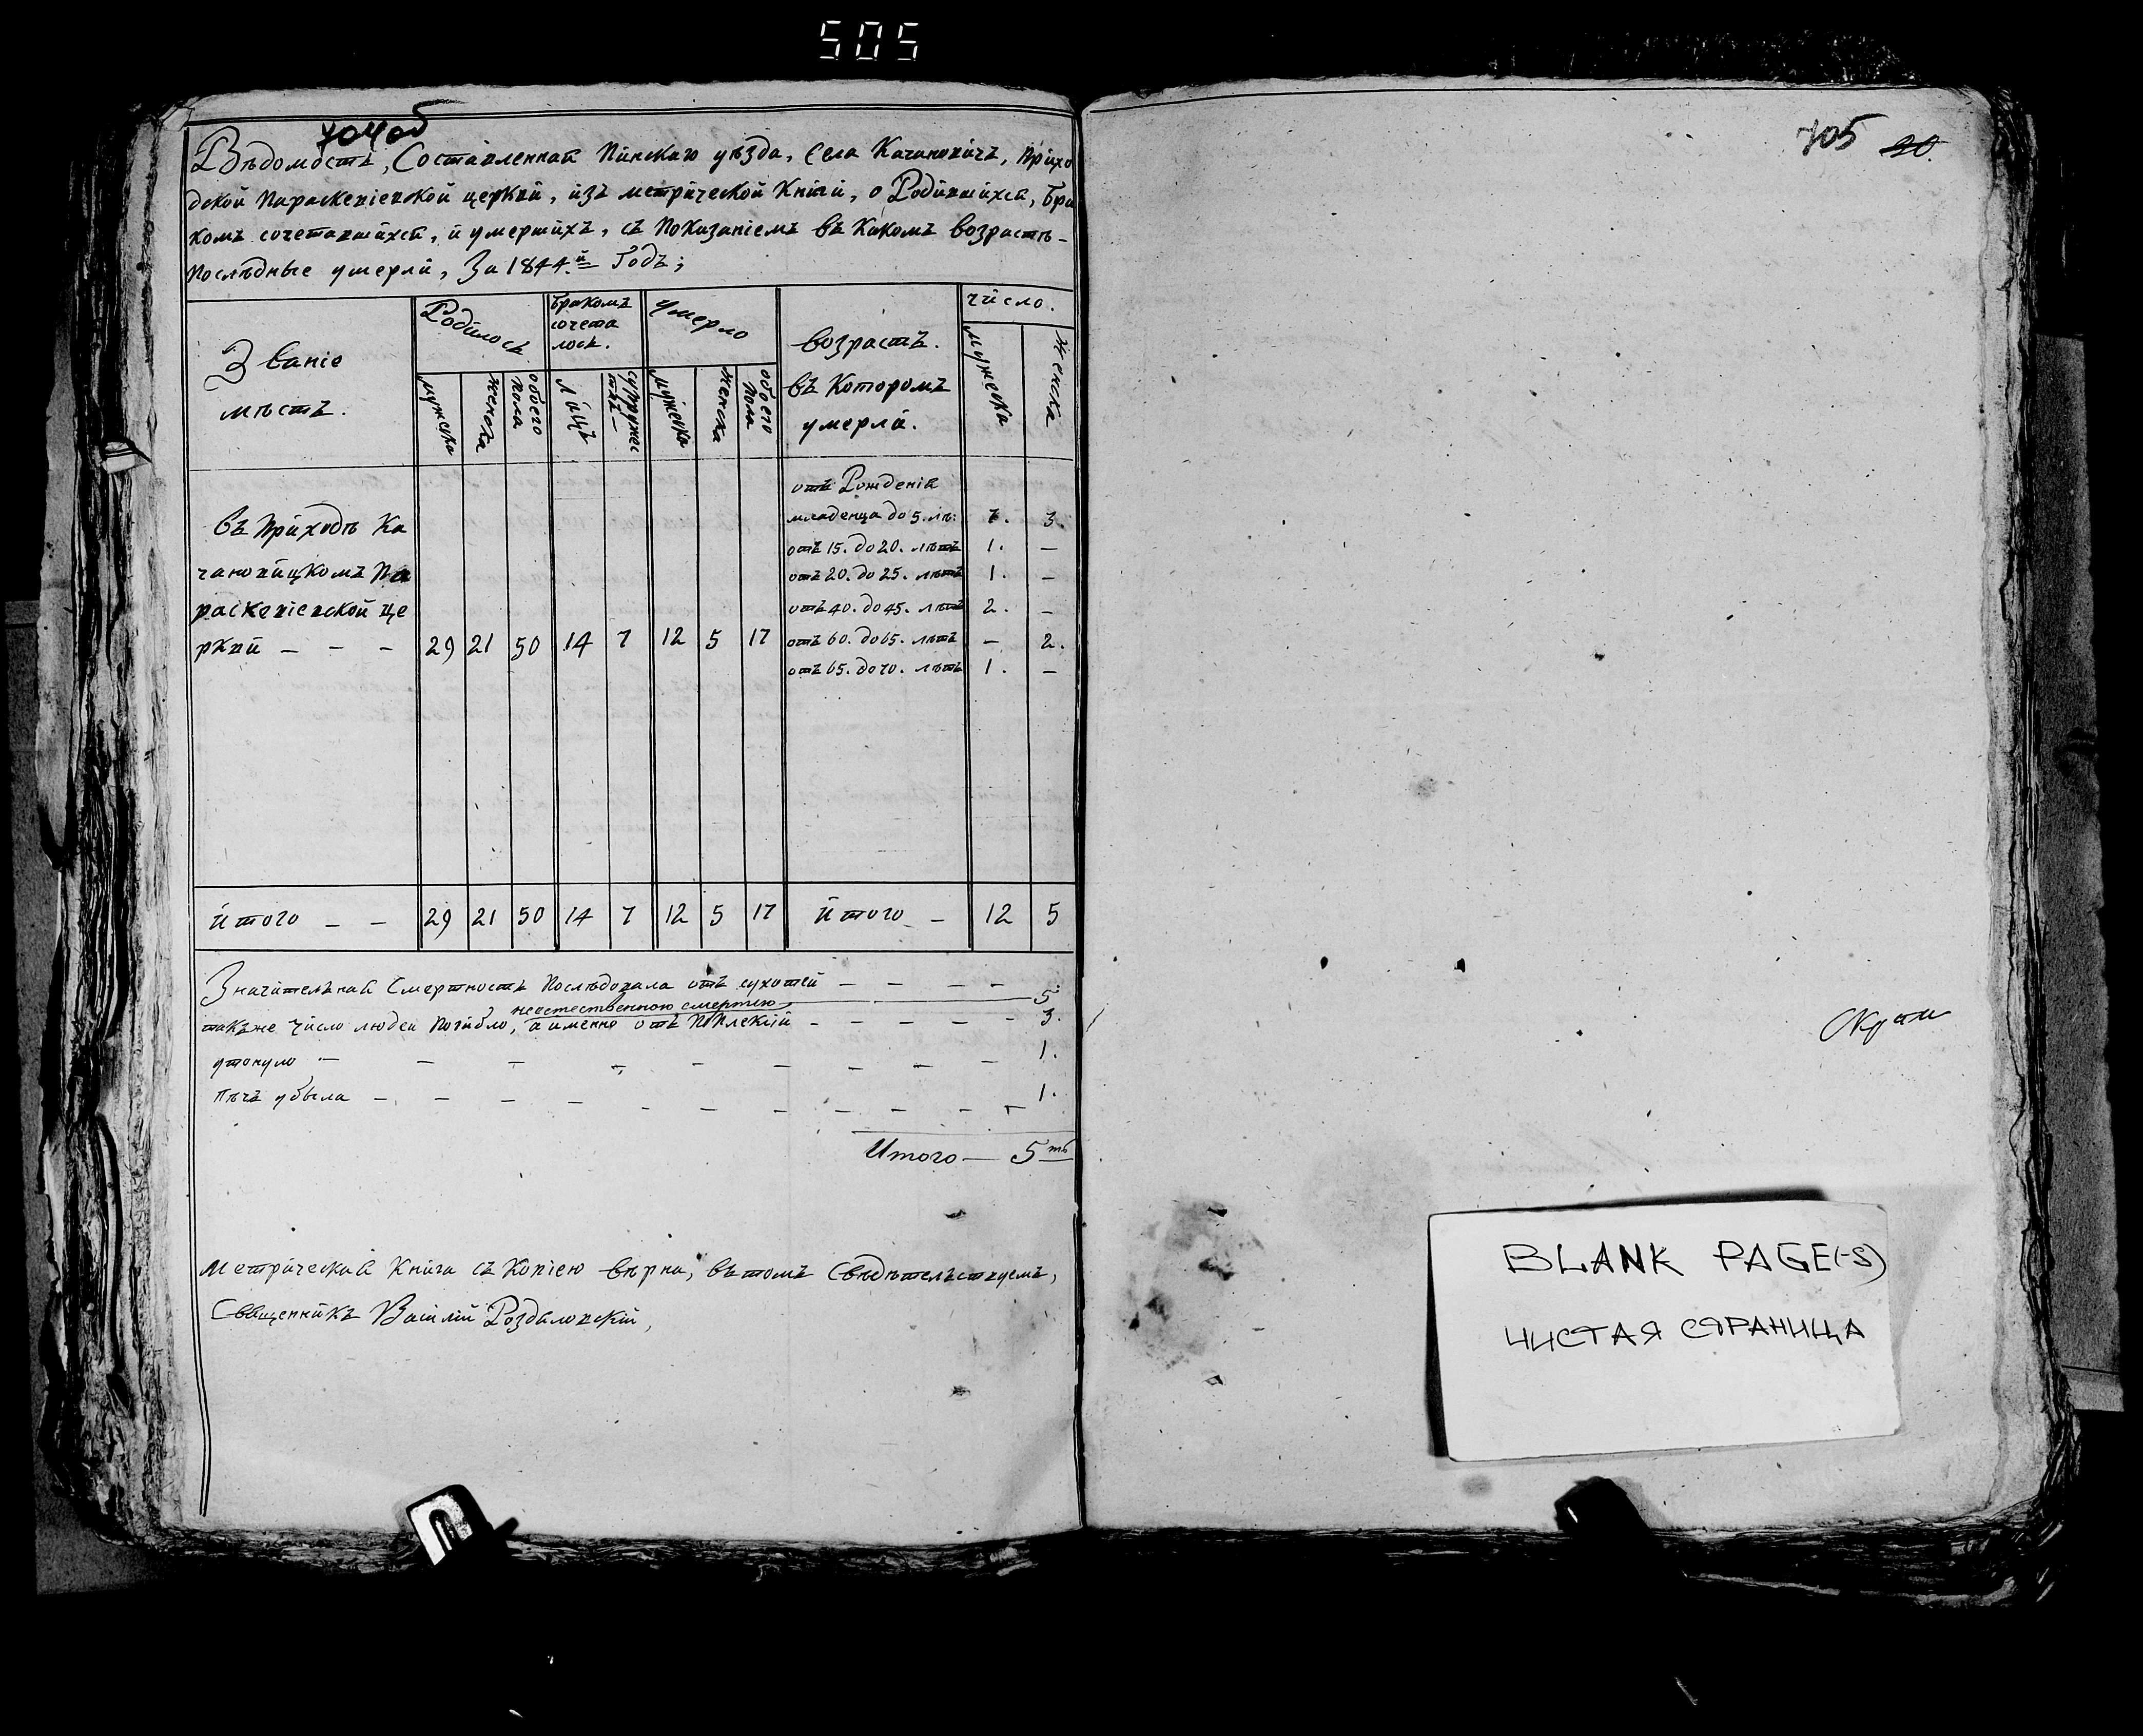 505
704об
Вѣдомость, Составленная Пинскаго уѣзда, Села Качановичъ, Прихо
дской Параскевіевской церкви, изъ метрической Книги, о Родившихся, Бра
комъ сочетавшихся, и умершихъ, съ Показаніемъ въ Какомъ возрастѣ
Послѣдные умерли, За 1844й Годъ;
Званіе мѣстъ.
Родилось
мужеска
женска
обоего пола
Бракомъ сочета лось.
лицъ
супружес твъ
Умерло
мужеска
женска
обоего пола
возрастъ. въ Которомъ умерли.
число.
мужеска
женска
отъ Рожденія
младенца до 5. лѣ: 7. 3.
отъ 15. до 20. лѣтъ 1. —
отъ 20. до 25. лѣтъ 1. —
отъ 40. до 45. лѣтъ 2. —
отъ 60. до 65. лѣтъ — 2.
отъ 65. до 70. лѣтъ 1. —
въ Приходѣ Ка
чановицкомъ Па
раскевіевской це
ркви — — — 29 21 50 14 7 12 5 17
Итого — — 29 21 50 14 7 12 5 17 Итого — 12 5
Значительная Смертность Послѣдовала отъ сухотей — — — — 5.
неестественною смертію
такъже число людей Погибло, а именно отъ — — — — — 3.
утонуло — — — — — — — — — 1.
убыла — — — — — — — — — 1.
Итого — 5ть
Метрическая Книга съ Копіею вѣрна, въ томъ Свѣдѣтельствуемъ,
Священникъ Василій Роздяловскій,
705 20.
BLANK PAGE(-S)
ЧИСТАЯ СТРАНИЦА